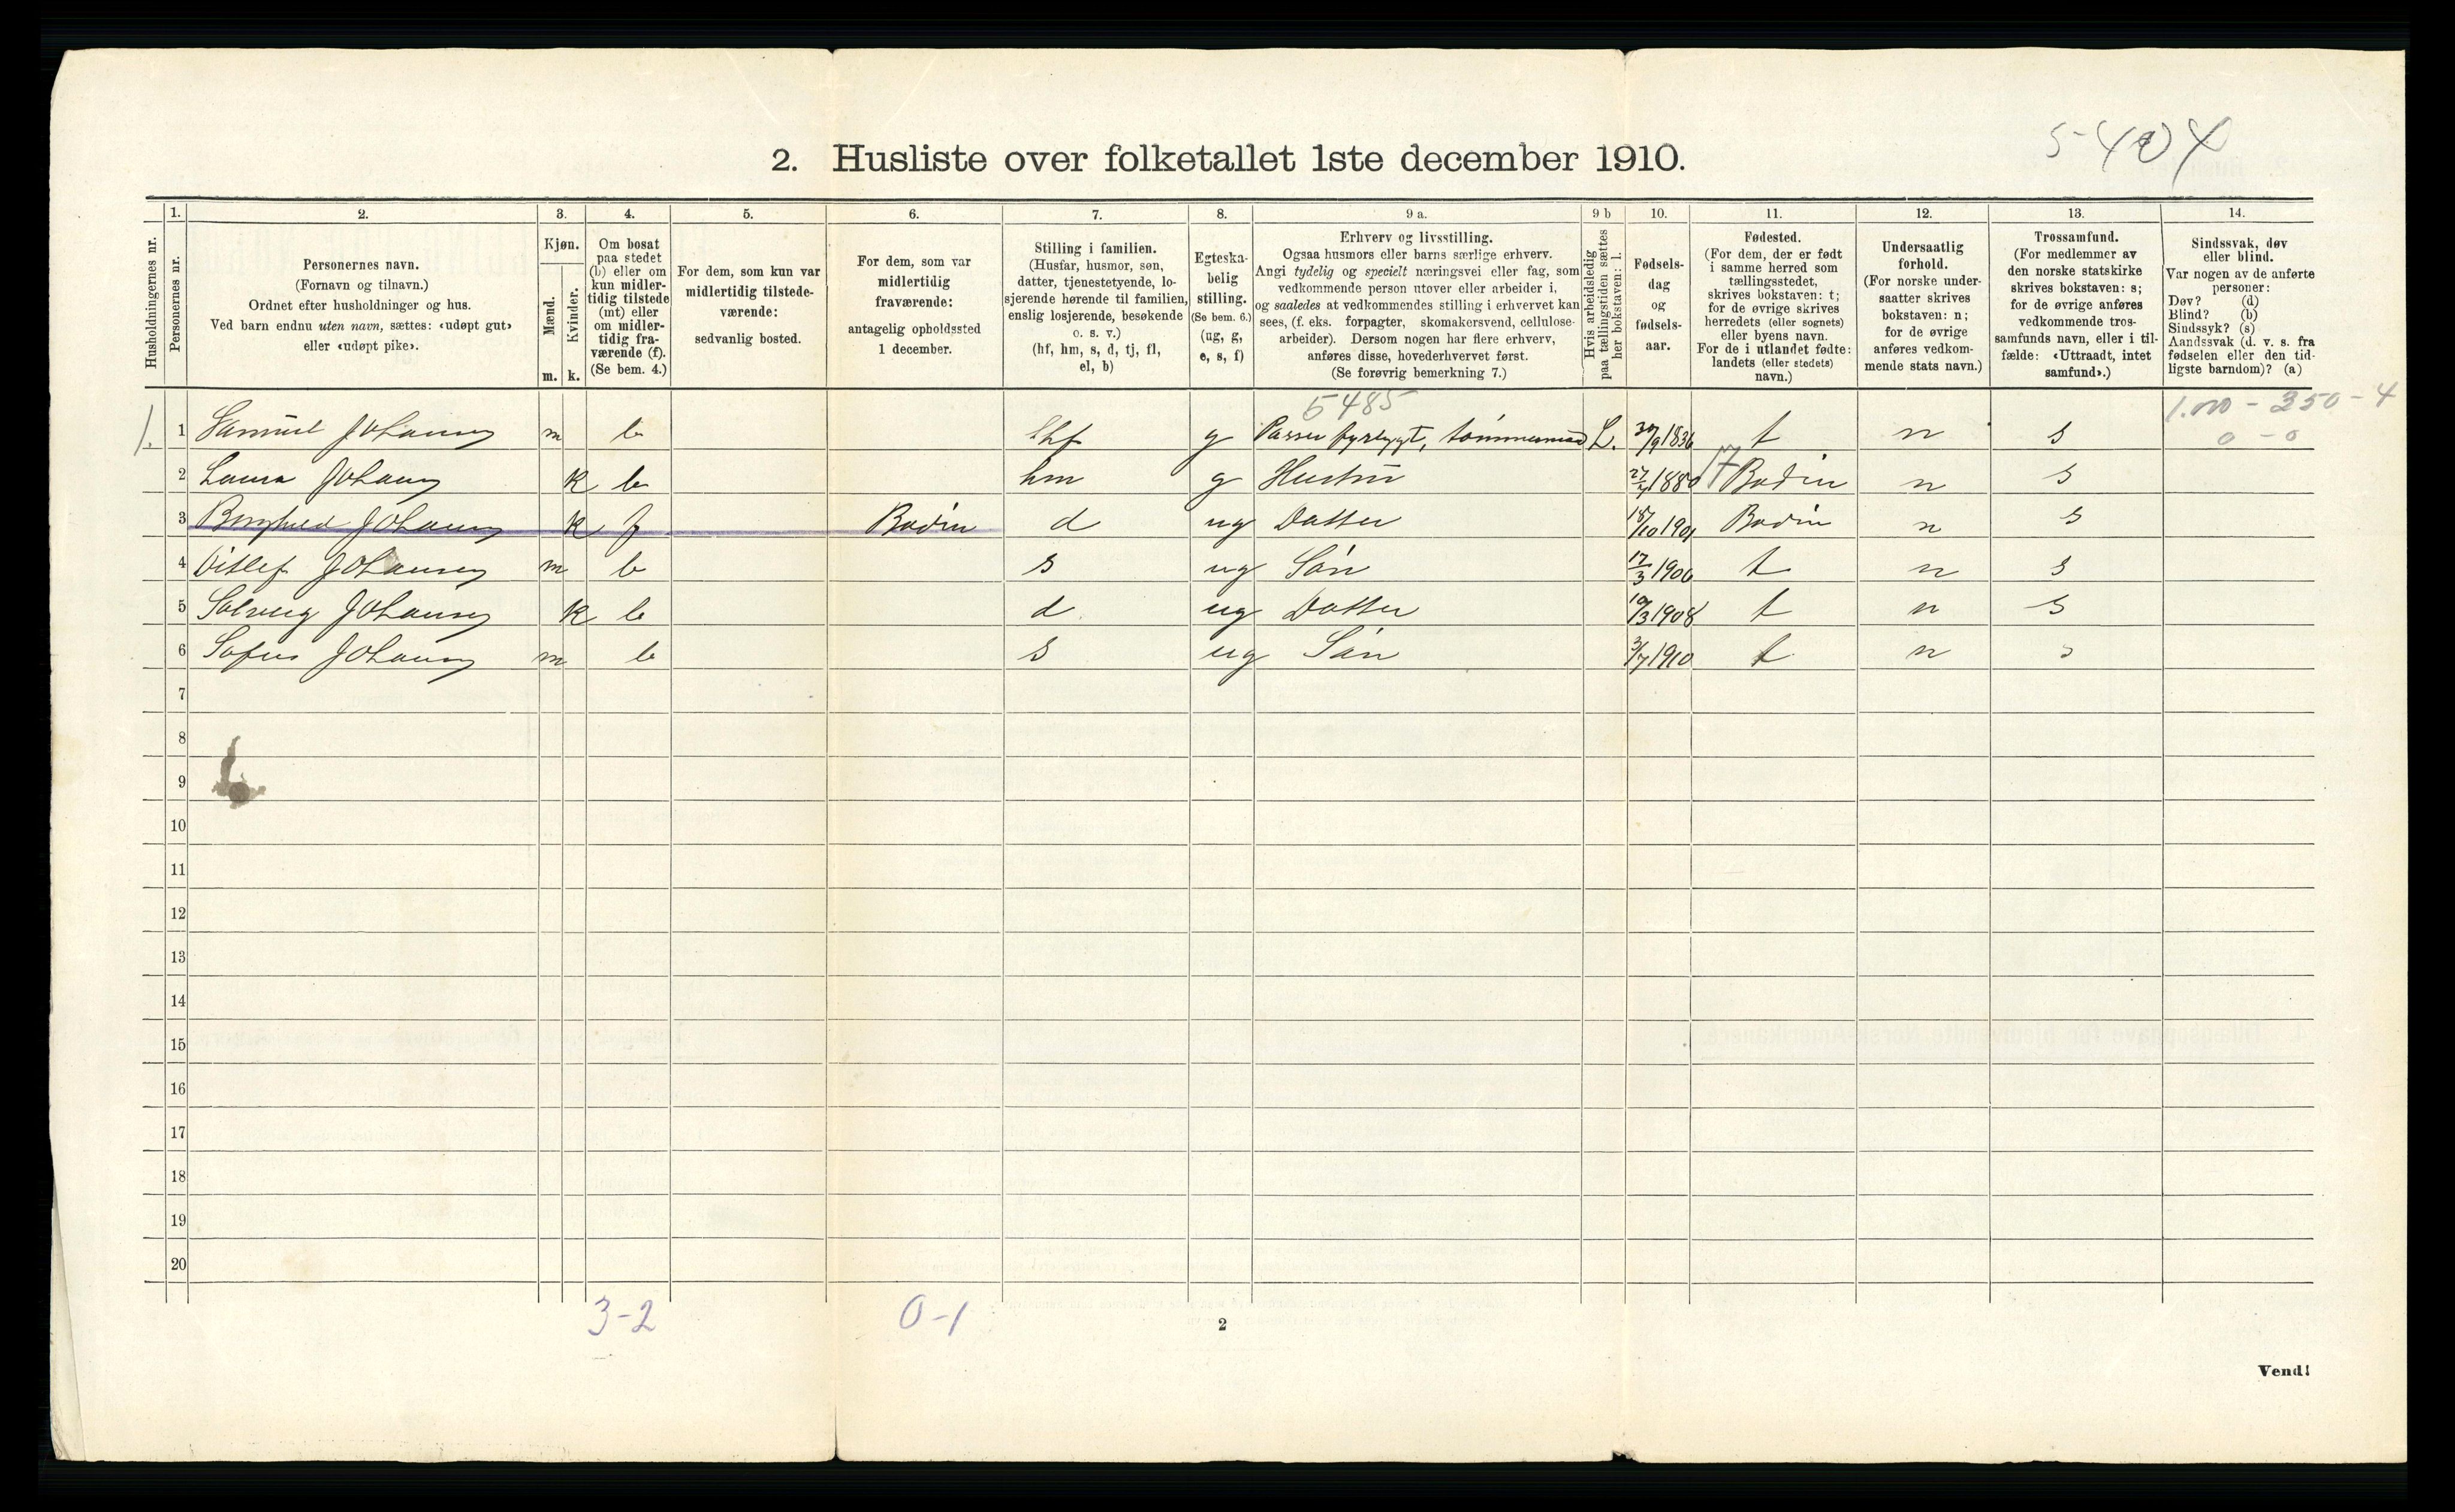 5-404
2. Husliste over folketallet 1ste december 1910.
Husholdningernes nr.
1.
Personernes nr.
2.
Personernes navn.
(Fornavn og tilnavn.)
Ordnet efter husholdninger og hus.
Ved barn endnu uten navn, sættes: «udøpt gut»
eller «udøpt pike».
3.
Kjøn.
Mænd.
Kvinder.
m. k.
4.
Om bosat
paa stedet
(b) eller om
kun midler-
tidig tilstede
(mt) eller
om midler-
tidig fra-
værende (f).
(Se bem. 4.)
5.
For dem, som kun var
midlertidig tilstede-
værende:
sedvanlig bosted.
6.
For dem, som var
midlertidig
fraværende:
antagelig opholdssted
1 december.
7.
Stilling i familien.
(Husfar, husmor, søn,
datter, tjenestetyende, lo-
sjerende hørende til familien,
enslig losjerende, besøkende
o. s. v.)
(hf, hm, s, d, tj, fl,
el, b)
8.
Egteska-
belig
stilling.
(Se bem. 6.)
(ug, g,
e, s, f)
9 a.
Erhverv og livsstilling.
Ogsaa husmors eller barns særlige erhverv.
Angi tydelig og specielt næringsvei eller fag, som
vedkommende person utøver eller arbeider i,
og saaledes at vedkommendes stilling i erhvervet kan
sees, (f. eks. forpagter, skomakersvend, cellulose-
arbeider). Dersom nogen har flere erhverv,
anføres disse, hovederhvervet først.
(Se forøvrig bemerkning 7.)
9 b
Hvis arbeidsledig
paa tællingstiden sættes
her bokstaven: l.
10.
Fødsels-
dag
og
fødsels-
aar.
11.
Fødested.
(For dem, der er født
i samme herred som
tællingsstedet,
skrives bokstaven: t;
for de øvrige skrives
herredets (eller sognets)
eller byens navn.
For de i utlandet fødte:
landets (eller stedets)
navn.)
12.
Undersaatlig
forhold.
(For norske under-
saatter skrives
bokstaven: n;
for de øvrige
anføres vedkom-
mende stats navn.)
13.
Trossamfund.
(For medlemmer av
den norske statskirke
skrives bokstaven: s;
for de øvrige anføres
vedkommende tros-
samfunds navn, eller i til-
fælde: «Uttraadt, intet
samfund».)
14.
Sindssvak, døv
eller blind.
Var nogen av de anførte
personer:
Døv? (d)
Blind? (b)
Sindssyk? (s)
Aandssvak (d. v. s. fra
fødselen eller den tid-
ligste barndom)? (a)
5485 1.000 - 350 - 4
1. 1 Samuel Johansen m b hf g Passer fyrlygt, tømmermand L. t n s 0 - 0
2 Laura Johansen k b hm g Hustru 1880 17 Bodin n s
3 Johansen k f Bodin d ug Datter 18/10 1901 Bodin n s
4 Ditlef Johansen m b s ug Søn 17/3 1906 t n s
5 Solveig Johansen k b d ug Datter 1908 t n s
6 Sofus Johansen m b s ug Søn 3/7 1910 t n s
7
8
9
10
11
12
13
14
15
16
17
18
19
20
3-2 0-1
2
Vend!